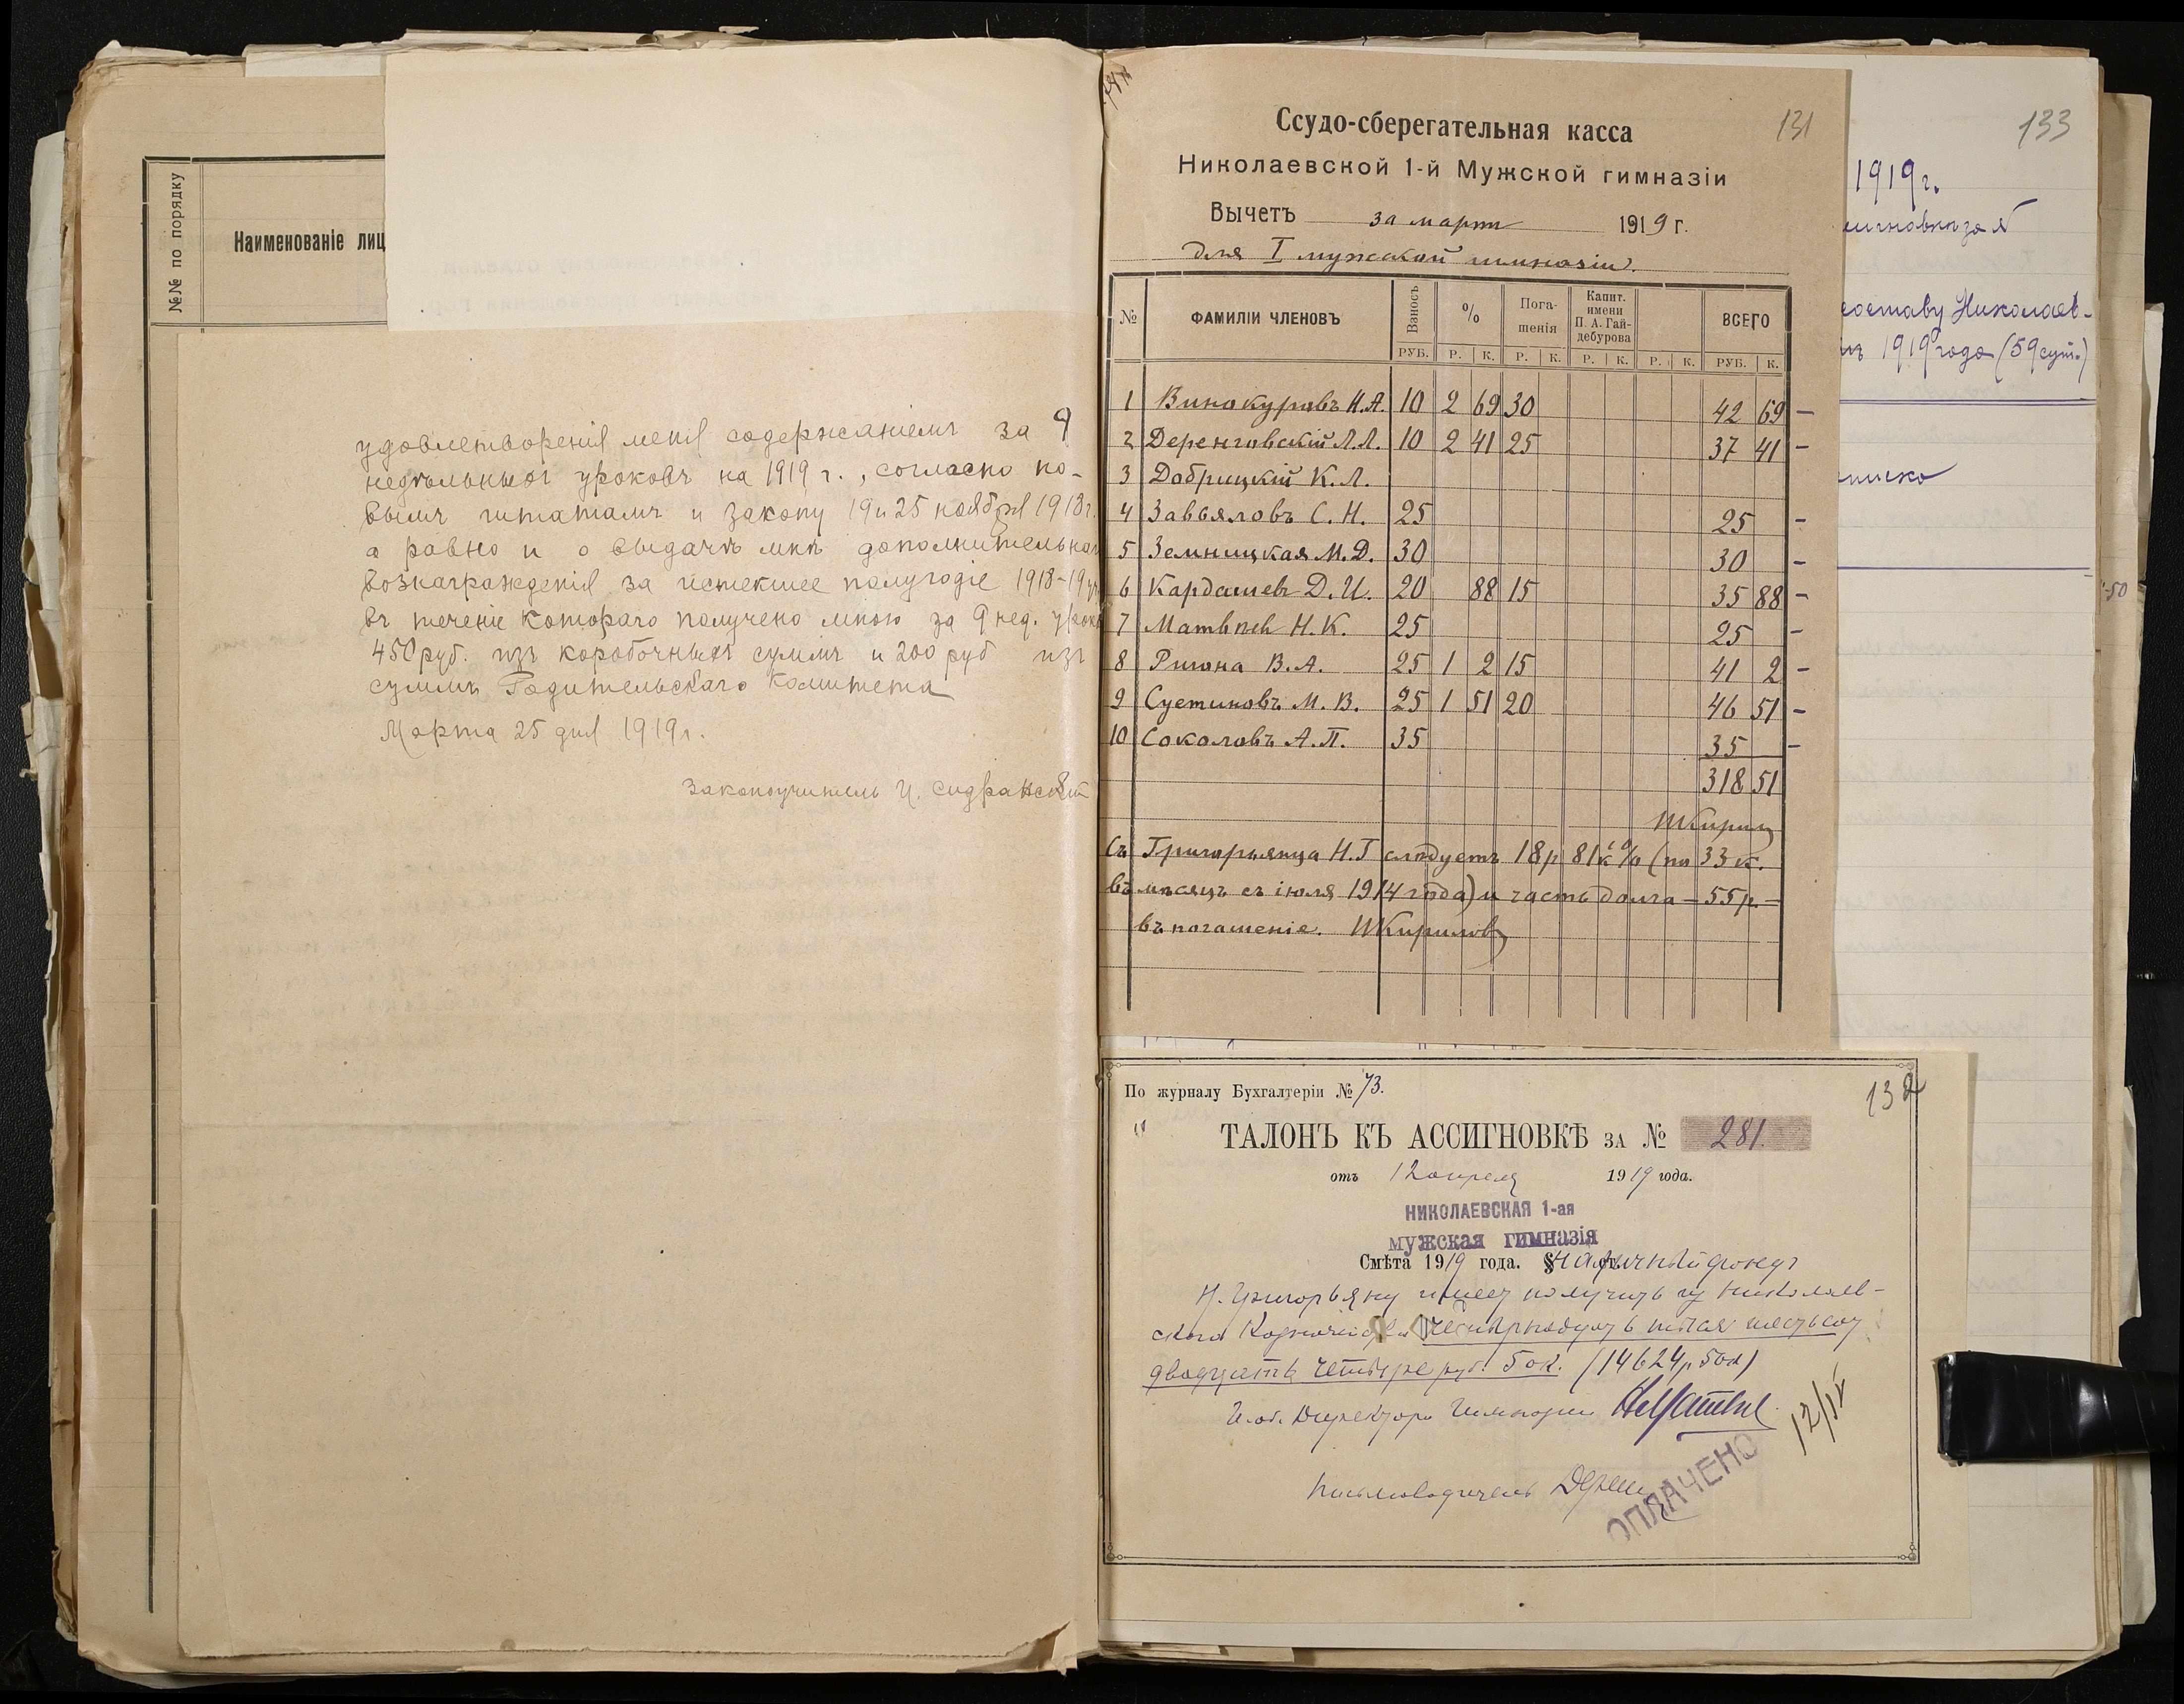 №№ по порядку
Наименованіе лиц
удовлетворенія меня содержаніемъ за 9
недѣльныхъ уроковъ на 1919 г., согласно но-
вымъ штатамъ и закону 19 и 25 ноября 1918 г.
а равно и о выдачѣ мнѣ дополнительна
вознагражденія за истекшее полугодіе 1918-19
въ теченіе котораго получено мною за 9 нед. урок
450 руб. изъ коробочныхъ суммъ и 200 руб изъ
суммъ Родительскаго Комитета
Марта 25 дня 1919 г.
Законоучитель
131
Ссудо-сберегательная касса
Николаевской 1-й Мужской гимназіи
Вычетъ за март 1919 г.
для I мужской гимназіи.
№ ФАМИЛІИ ЧЛЕНОВЪ Взносъ % Пога-шенія Капит. имени П. А. Гай-дебурова ВСЕГО
РУБ. Р. К. Р. К. Р. К. Р. К. РУБ. К.
1 Винокуровъ Н.А. 10 2 69 30 42 69 –
2 Деренговскій Л.Л. 10 2 41 25 37 41 –
3 Добрицкій К.Л.
4 Завьяловъ С.Н. 25 25 –
5 Земницкая М.Д. 30 30 –
6 Кардашев Д.И. 20 88 15 35 88 –
7 Матвѣев Н.К. 25 25 –
8 В.А. 25 1 2 15 41 2 –
9 Сустиновъ М.В. 25 1 51 20 46 51 –
10 Соколовъ А.П. 35 35 –
318 51
Съ Григорьянца Н.Г следуетъ 18 р 81 к % (по 33 к.
въ мѣсяцъ съ іюля 1914 года) и часть долга – 55 р. –
въ погашеніе. Кирилов
132
По журналу Бухгалтеріи № 73.
ТАЛОНЪ КЪ АССИГНОВКѢ за № 281.
отъ 12 апреля 1919 года.
НИКОЛАЕВСКАЯ 1-ая
мужская гимназія
Смѣта 1919 года. § наличный фонд
Н. Григорьянц имеет получить из Николаев-
ского Казначейства четырнадцать тысяч шестьсот
двадцать четыре руб. 50 к. (14624 р 50 к)
И. об. Директора Гимназии
Письмоводитель
ОПЛАЧЕНО
12/IV
133
1919 г.
составу Николаев-
1919 года (59 сут.)
50